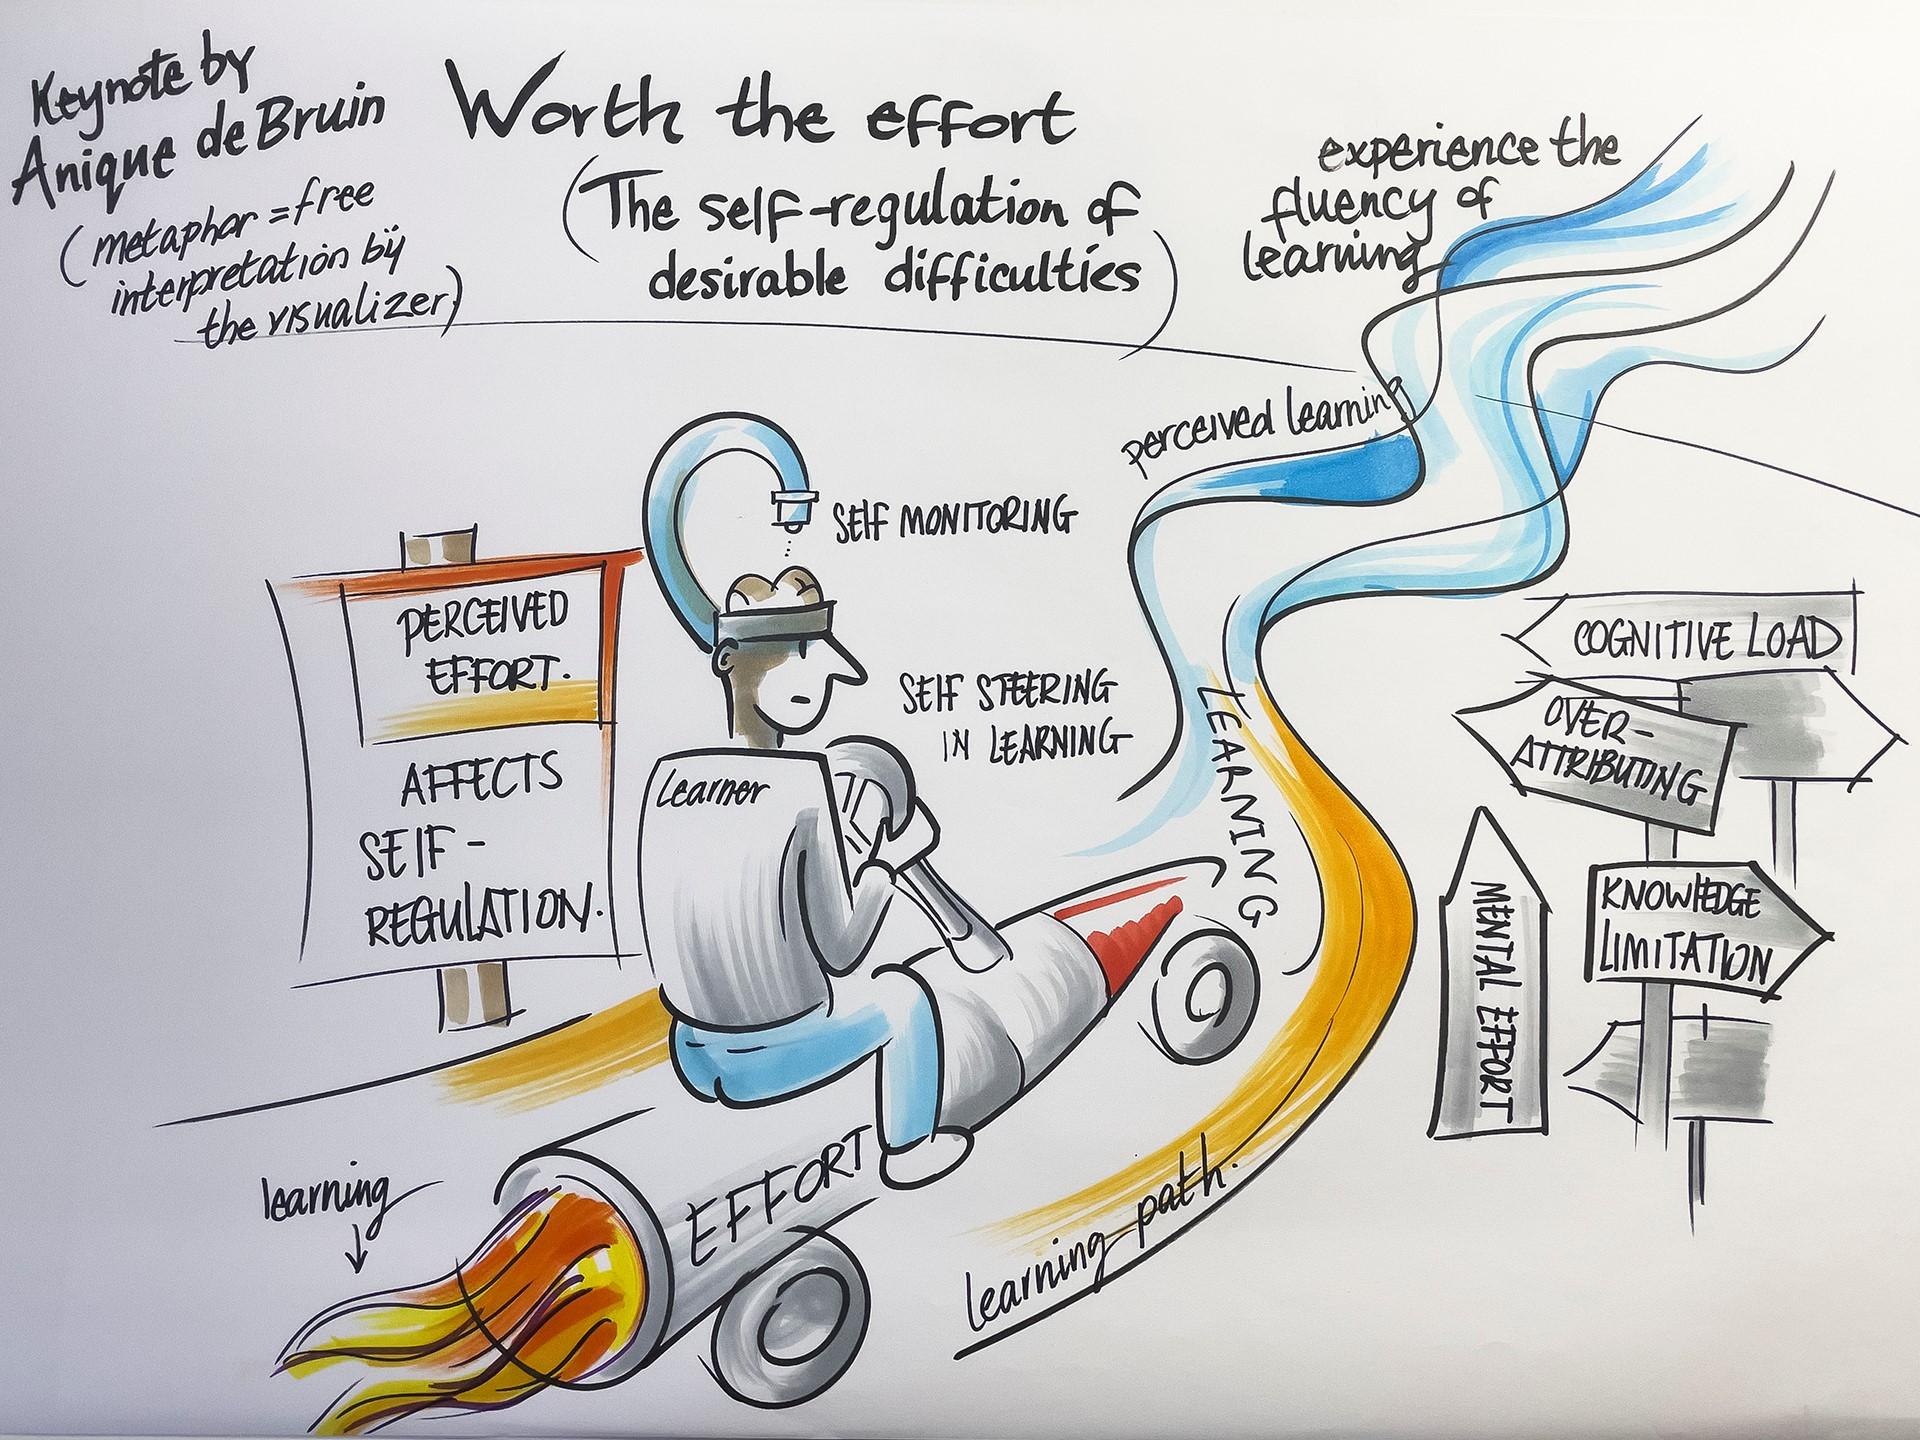 Keynote by
Anique de Bruin
(metaphor = free
interpretation by
the visualizer)
Worth the effort
(The self-regulation of
desirable difficulties)
experience the
fluency of
learning
perceived learning
SELF MONITORING
SELF STEERING
IN LEARNING
PERCEIVED
EFFORT.
AFFECTS
SELF-
REGULATION.
Learner
LEARNING
COGNITIVE LOAD
OVER-
ATTRIBUTING
KNOWLEDGE
LIMITATION
MENTAL EFFORT
learning
EFFORT
learning path.